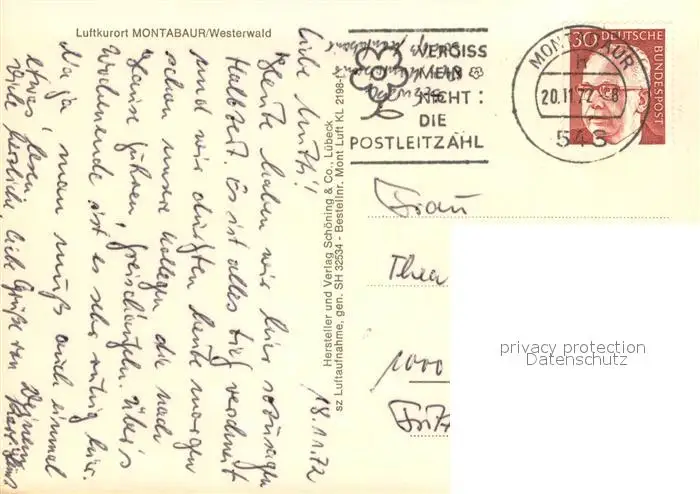 Luftkurort MONTABAUR/Westerwald
18.11.72
Liebe Mutti!
Heute haben wir hier sozusagen
Halbzeit. Es ist alles tief verschneit
und wir durften heute morgen
schon unsere Kollegen die nach
Hause führen, freischaufeln. Über's
Wochenende ist es sehr ruhig hier.
Na ja, man muß auch einmal
etwas lesen.
Viele herzliche, liebe Grüße von Deinem
Hersteller und Verlag Schöning & Co., Lübeck
sz Luftaufnahme, gen. SH 32534 - Bestellnr. Mont Luft KL 2198-
VERGISS
MEIN
NICHT:
DIE
POSTLEITZAHL
MONTABAUR
h
20.11.72 -8
543
30 DEUTSCHE
BUNDESPOST
Frau
Thea
1000
Fritz
privacy protection
Datenschutz